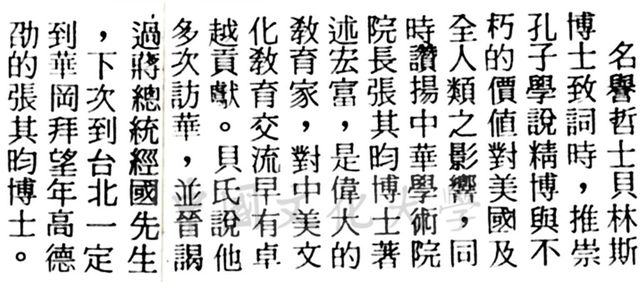 名譽哲士貝林斯
博士致詞時，推崇
孔子學說精博與不
朽的價值對美國及
全人類之影響，同
時讚揚中華學術院
院長張其昀博士著
述宏富，是偉大的
教育家，對中美文
化教育交流早有卓
越貢獻。貝氏說他
多次訪華，並晉謁
過蔣總統經國先生
，下次到台北一定
到華岡拜望年高德
劭的張其昀博士。
中國文化大學